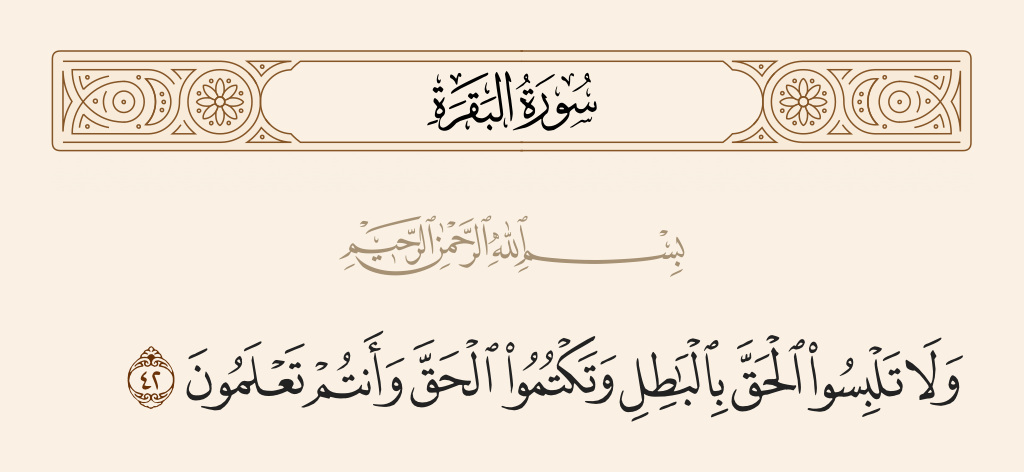 سُورَةُ البَقَرَةِ
بِسْمِ ٱللَّهِ ٱلرَّحْمَٰنِ ٱلرَّحِيمِ
وَلَا تَلْبِسُوا۟ ٱلْحَقَّ بِٱلْبَٰطِلِ وَتَكْتُمُوا۟ ٱلْحَقَّ وَأَنتُمْ تَعْلَمُونَ ٤٢